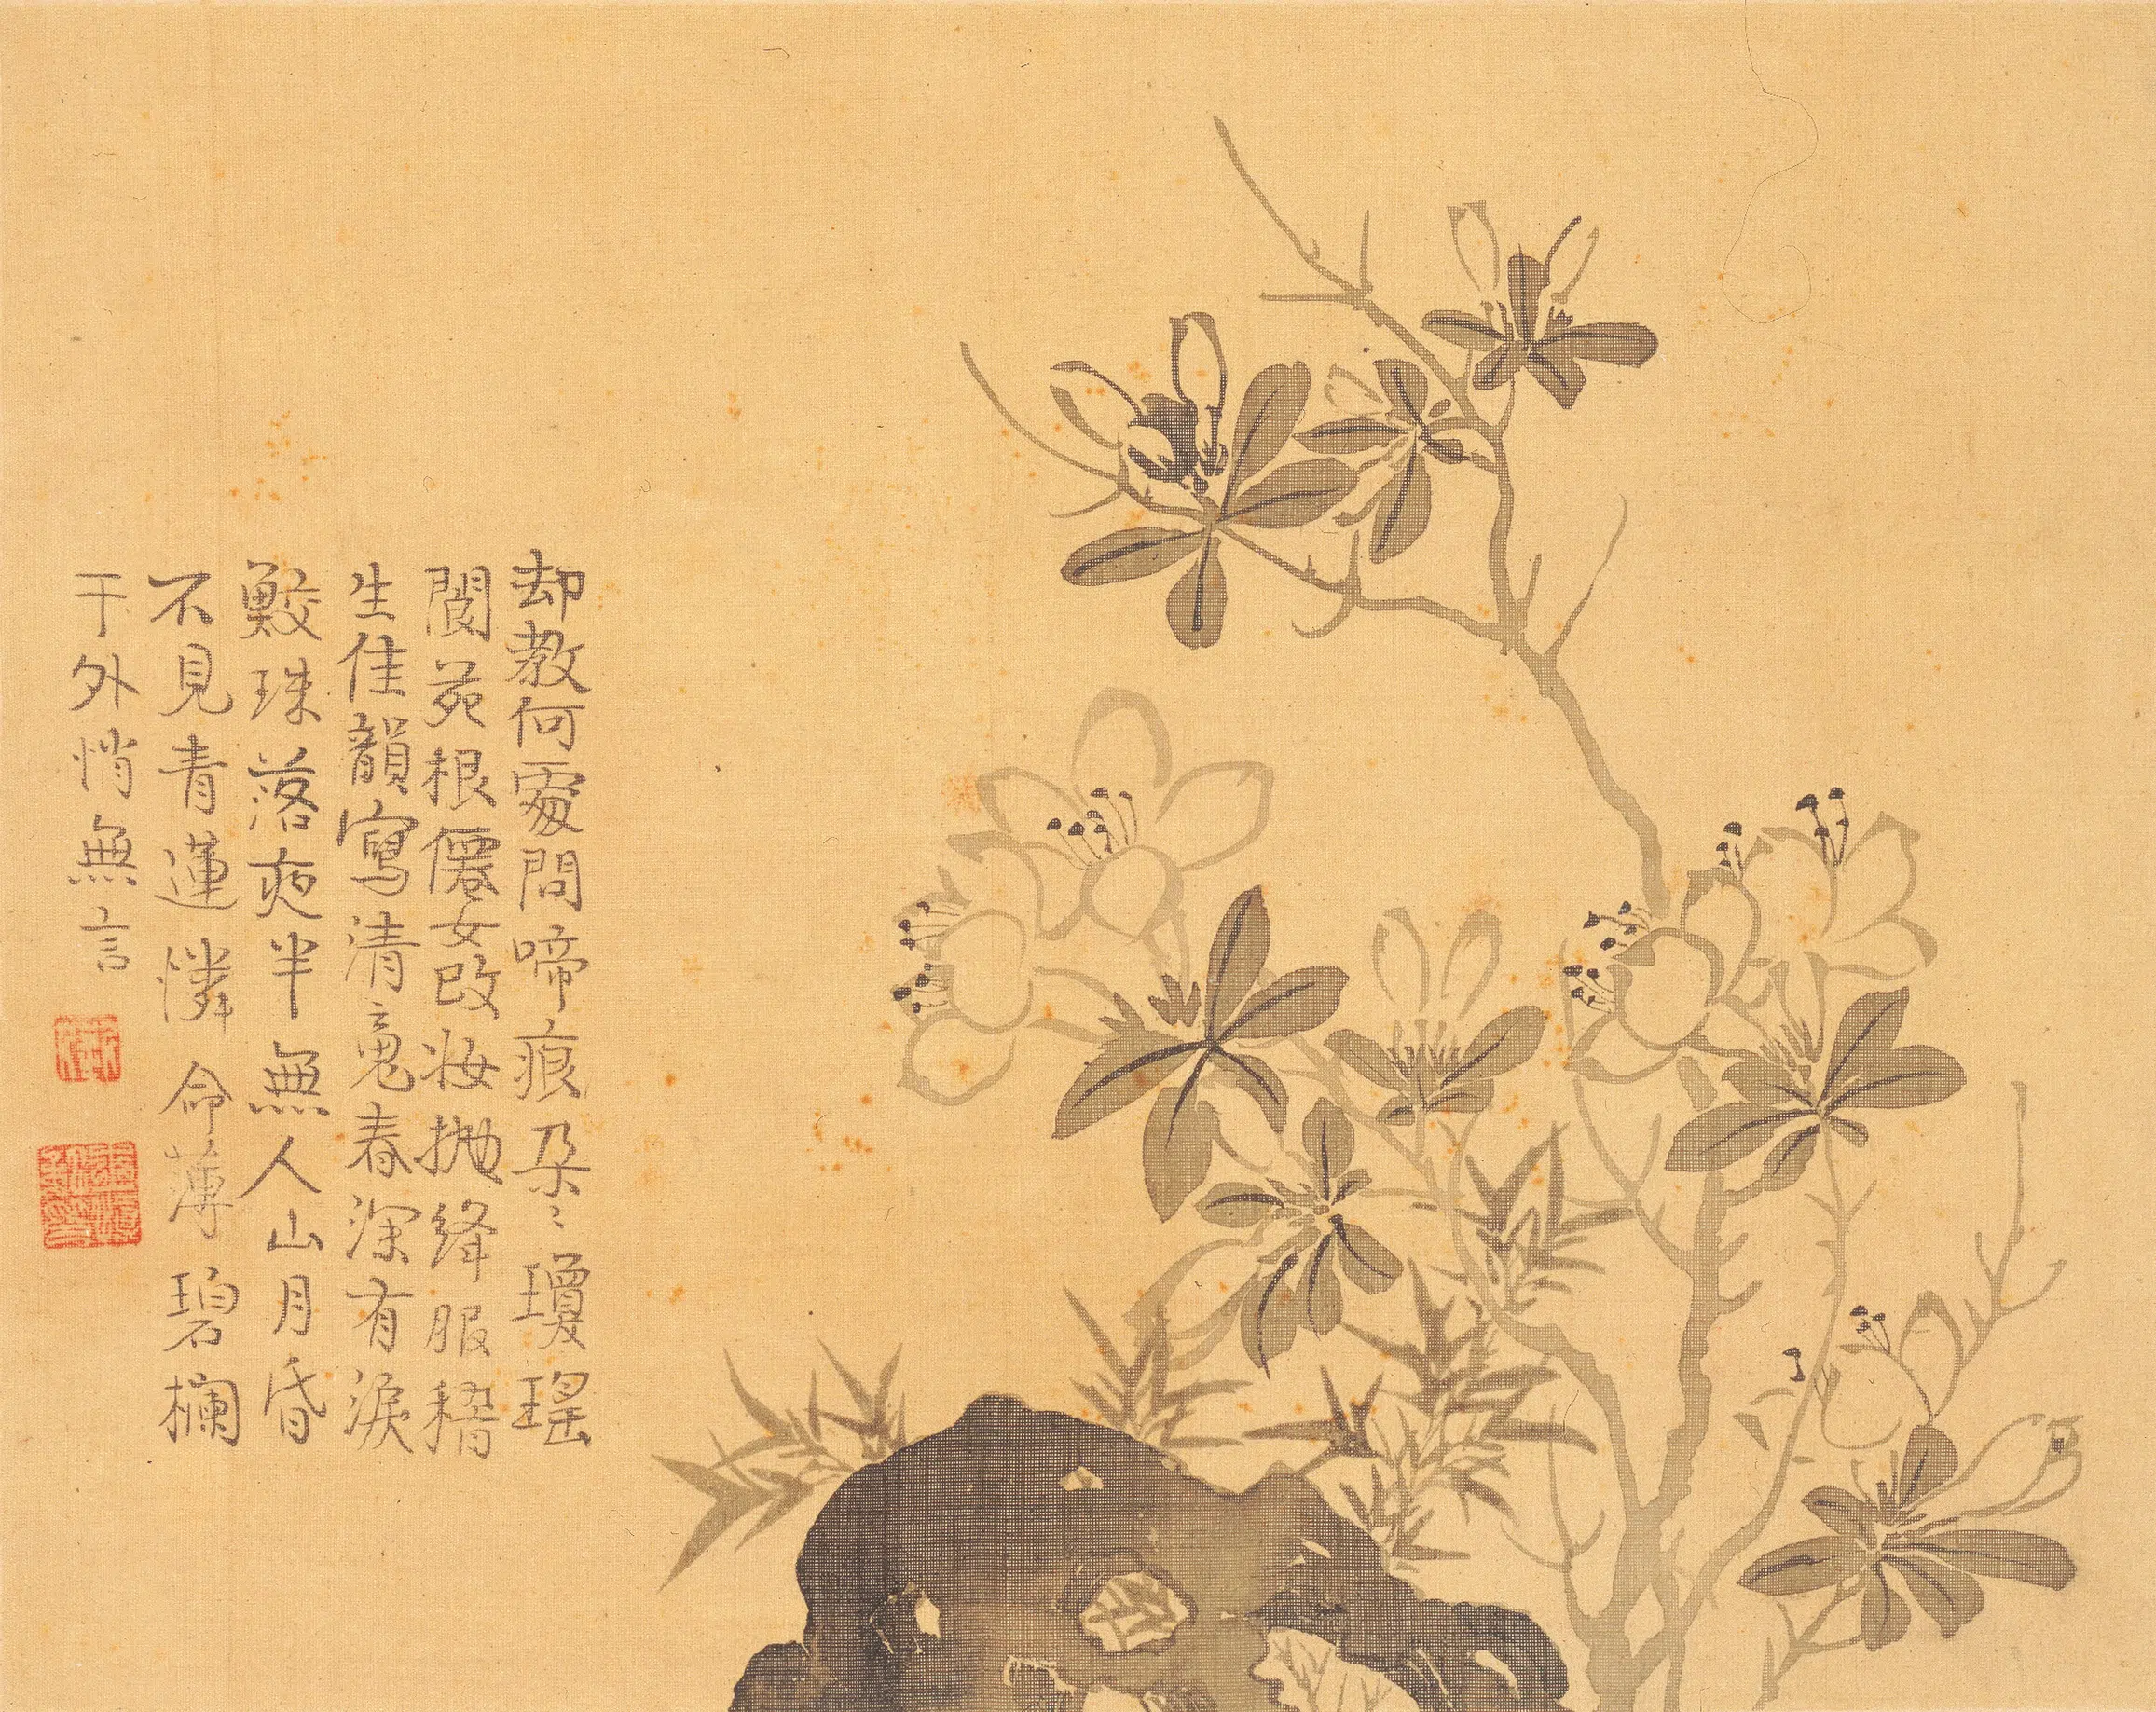 却教何處問啼痕朶〻瓊瑤
閬苑根僊女改妝拋絳服稽
生佳韻寫清魂春深有淚
鮫珠落夜半無人山月昏
不見青蓮憐命薄碧欄
干外悄無言